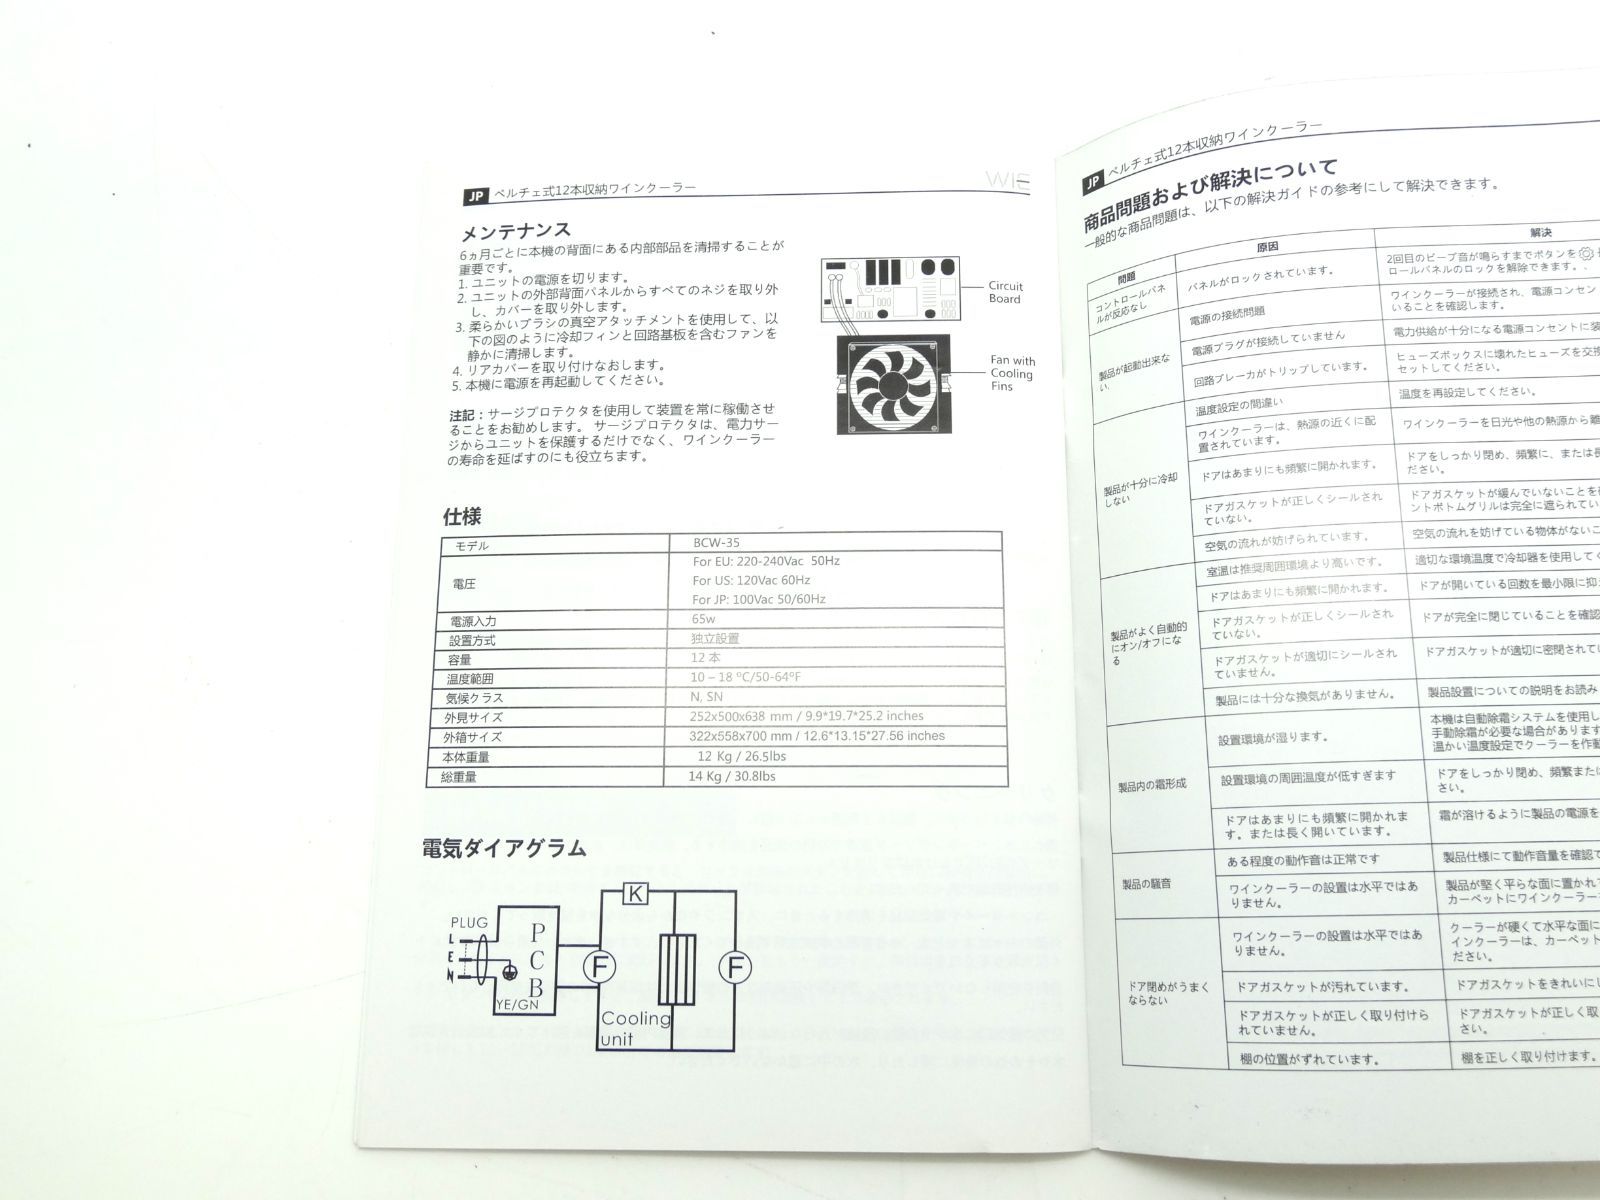 JP ペルチェ式12本収納ワインクーラー
WIE
メンテナンス
6ヵ月ごとに本機の背面にある内部部品を清掃することが
重要です。
1. ユニットの電源を切ります。
2. ユニットの外部背面パネルからすべてのネジを取り外
し、カバーを取り外します。
3. 柔らかいブラシの真空アタッチメントを使用して、以
下の図のように冷却フィンと回路基板を含むファンを
静かに清掃します。
4. リアカバーを取り付けなおします。
5. 本機に電源を再起動してください。
注記：サージプロテクタを使用して装置を常に稼働させ
ることをお勧めします。 サージプロテクタは、電力サー
ジからユニットを保護するだけでなく、ワインクーラー
の寿命を延ばすのにも役立ちます。
Circuit
Board
Fan with
Cooling
Fins
仕様
モデル BCW-35
電圧 For EU: 220-240Vac 50Hz
For US: 120Vac 60Hz
For JP: 100Vac 50/60Hz
電源入力 65w
設置方式 独立設置
容量 12 本
温度範囲 10 – 18 ºC/50-64ºF
気候クラス N, SN
外見サイズ 252x500x638 mm / 9.9*19.7*25.2 inches
外箱サイズ 322x558x700 mm / 12.6*13.15*27.56 inches
本体重量 12 Kg / 26.5lbs
総重量 14 Kg / 30.8lbs
電気ダイアグラム
PLUG
L
E
N
PCB
YE/GN
K
F
F
Cooling
unit
JP ペルチェ式12本収納ワインクーラー
商品問題および解決について
一般的な商品問題は、以下の解決ガイドの参考にして解決できます。
問題 原因 解決
コントロールパネ
ルが反応なし
パネルがロックされています。
2回目のビープ音が鳴らすまでボタンを
ロールパネルのロックを解除できます。、
製品が起動出来な
い
電源の接続問題
ワインクーラーが接続され、電源コンセン
いることを確認します。
電源プラグが接続していません
電力供給が十分になる電源コンセントに
回路ブレーカがトリップしています。
ヒューズボックスに壊れたヒューズを交換
セットしてください。
製品が十分に冷却
しない
温度設定の間違い
温度を再設定してください。
ワインクーラーは、熱源の近くに配
置されています。
ワインクーラーを日光や他の熱源から離
ドアはあまりにも頻繁に開かれます。
ドアをしっかり閉め、頻繁に、または長
ださい。
ドアガスケットが正しくシールされ
ていない。
ドアガスケットが緩んでいないことを
ントボトムグリルは完全に遮られてい
空気の流れが妨げられています。
空気の流れを妨げている物体がないこ
製品がよく自動的
にオン/オフにな
る
室温は推奨周囲環境より高いです。
適切な環境温度で冷却器を使用して
ドアはあまりにも頻繁に開かれます。
ドアが開いている回数を最小限に抑
ドアガスケットが正しくシールされ
ていない。
ドアが完全に閉じていることを確認
ドアガスケットが適切にシールされ
ていません。
ドアガスケットが適切に密閉されて
製品には十分な換気がありません。
製品設置についての説明をお読み
製品内の霜形成
設置環境が湿ります。
本機は自動除霜システムを使用し
手動除霜が必要な場合があります
温かい温度設定でクーラーを作動
設置環境の周囲温度が低すぎます
ドアをしっかり閉め、頻繁または
さい。
ドアはあまりにも頻繁に開かれま
す。または長く開いています。
霜が溶けるように製品の電源を
製品の騒音
ある程度の動作音は正常です
製品仕様にて動作音量を確認
ワインクーラーの設置は水平ではあ
りません。
製品が堅く平らな面に置かれ
カーペットにワインクーラー
ドア閉めがうまく
ならない
ワインクーラーの設置は水平ではあ
りません。
クーラーが硬くて水平な面に
インクーラーは、カーペット
ださい。
ドアガスケットが汚れています。
ドアガスケットをきれいにし
ドアガスケットが正しく取り付けら
れていません。
ドアガスケットが正しく取
さい。
棚の位置がずれています。
棚を正しく取り付けます。